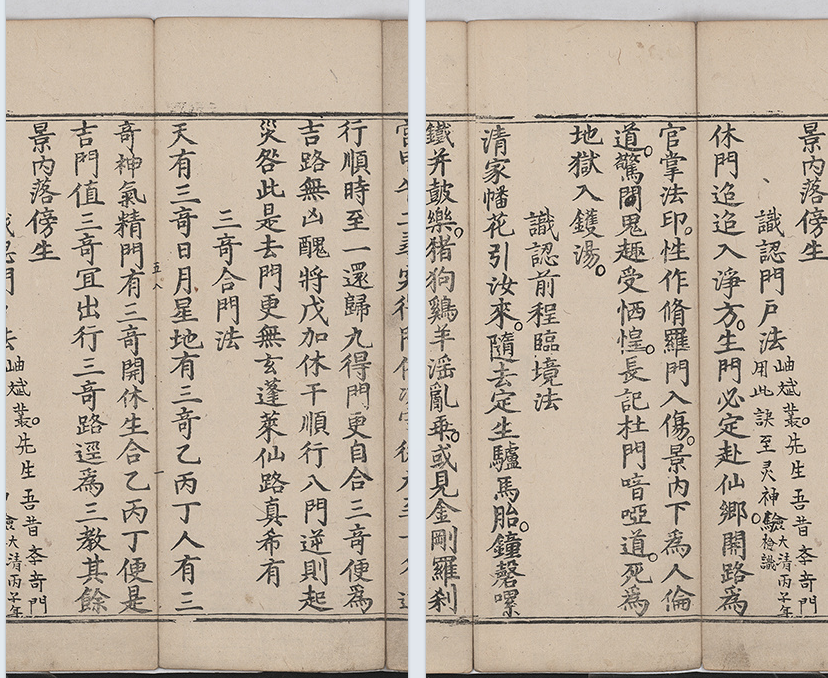 行順時至一還歸九得門更自合三奇便為
吉路無凶醜將戊加休干順行八門逆則起
災咎此是去門更無玄蓬萊仙路真希有
三竒合門法
天有三竒日月星地有三竒乙丙丁人有三
五八
竒神氣精門有三竒開休生合乙丙丁便是
吉門值三竒宜出行三竒路逕為三教其餘
景內落傍生
岫斌叢。先生吾昔李竒門
大清丙子年
景內落傍生
識認門戶法
岫斌叢。先生吾昔李竒門
用此訣至灵神驗大清丙子年
休門迢迢入淨方。生門必定赴仙鄉。開路為
官掌法印。性作脩羅門入傷。景內下為人倫
道。驚閒鬼趣受恓惶。長記杜門喑啞道。死為
地獄入鑊湯。
識認前程臨境法
清家幡花引汝來。隨去定生驢馬胎。鐘磬螺
鐵并鼓樂。猪狗鷄羊淫亂乘。或見金剛羅刹